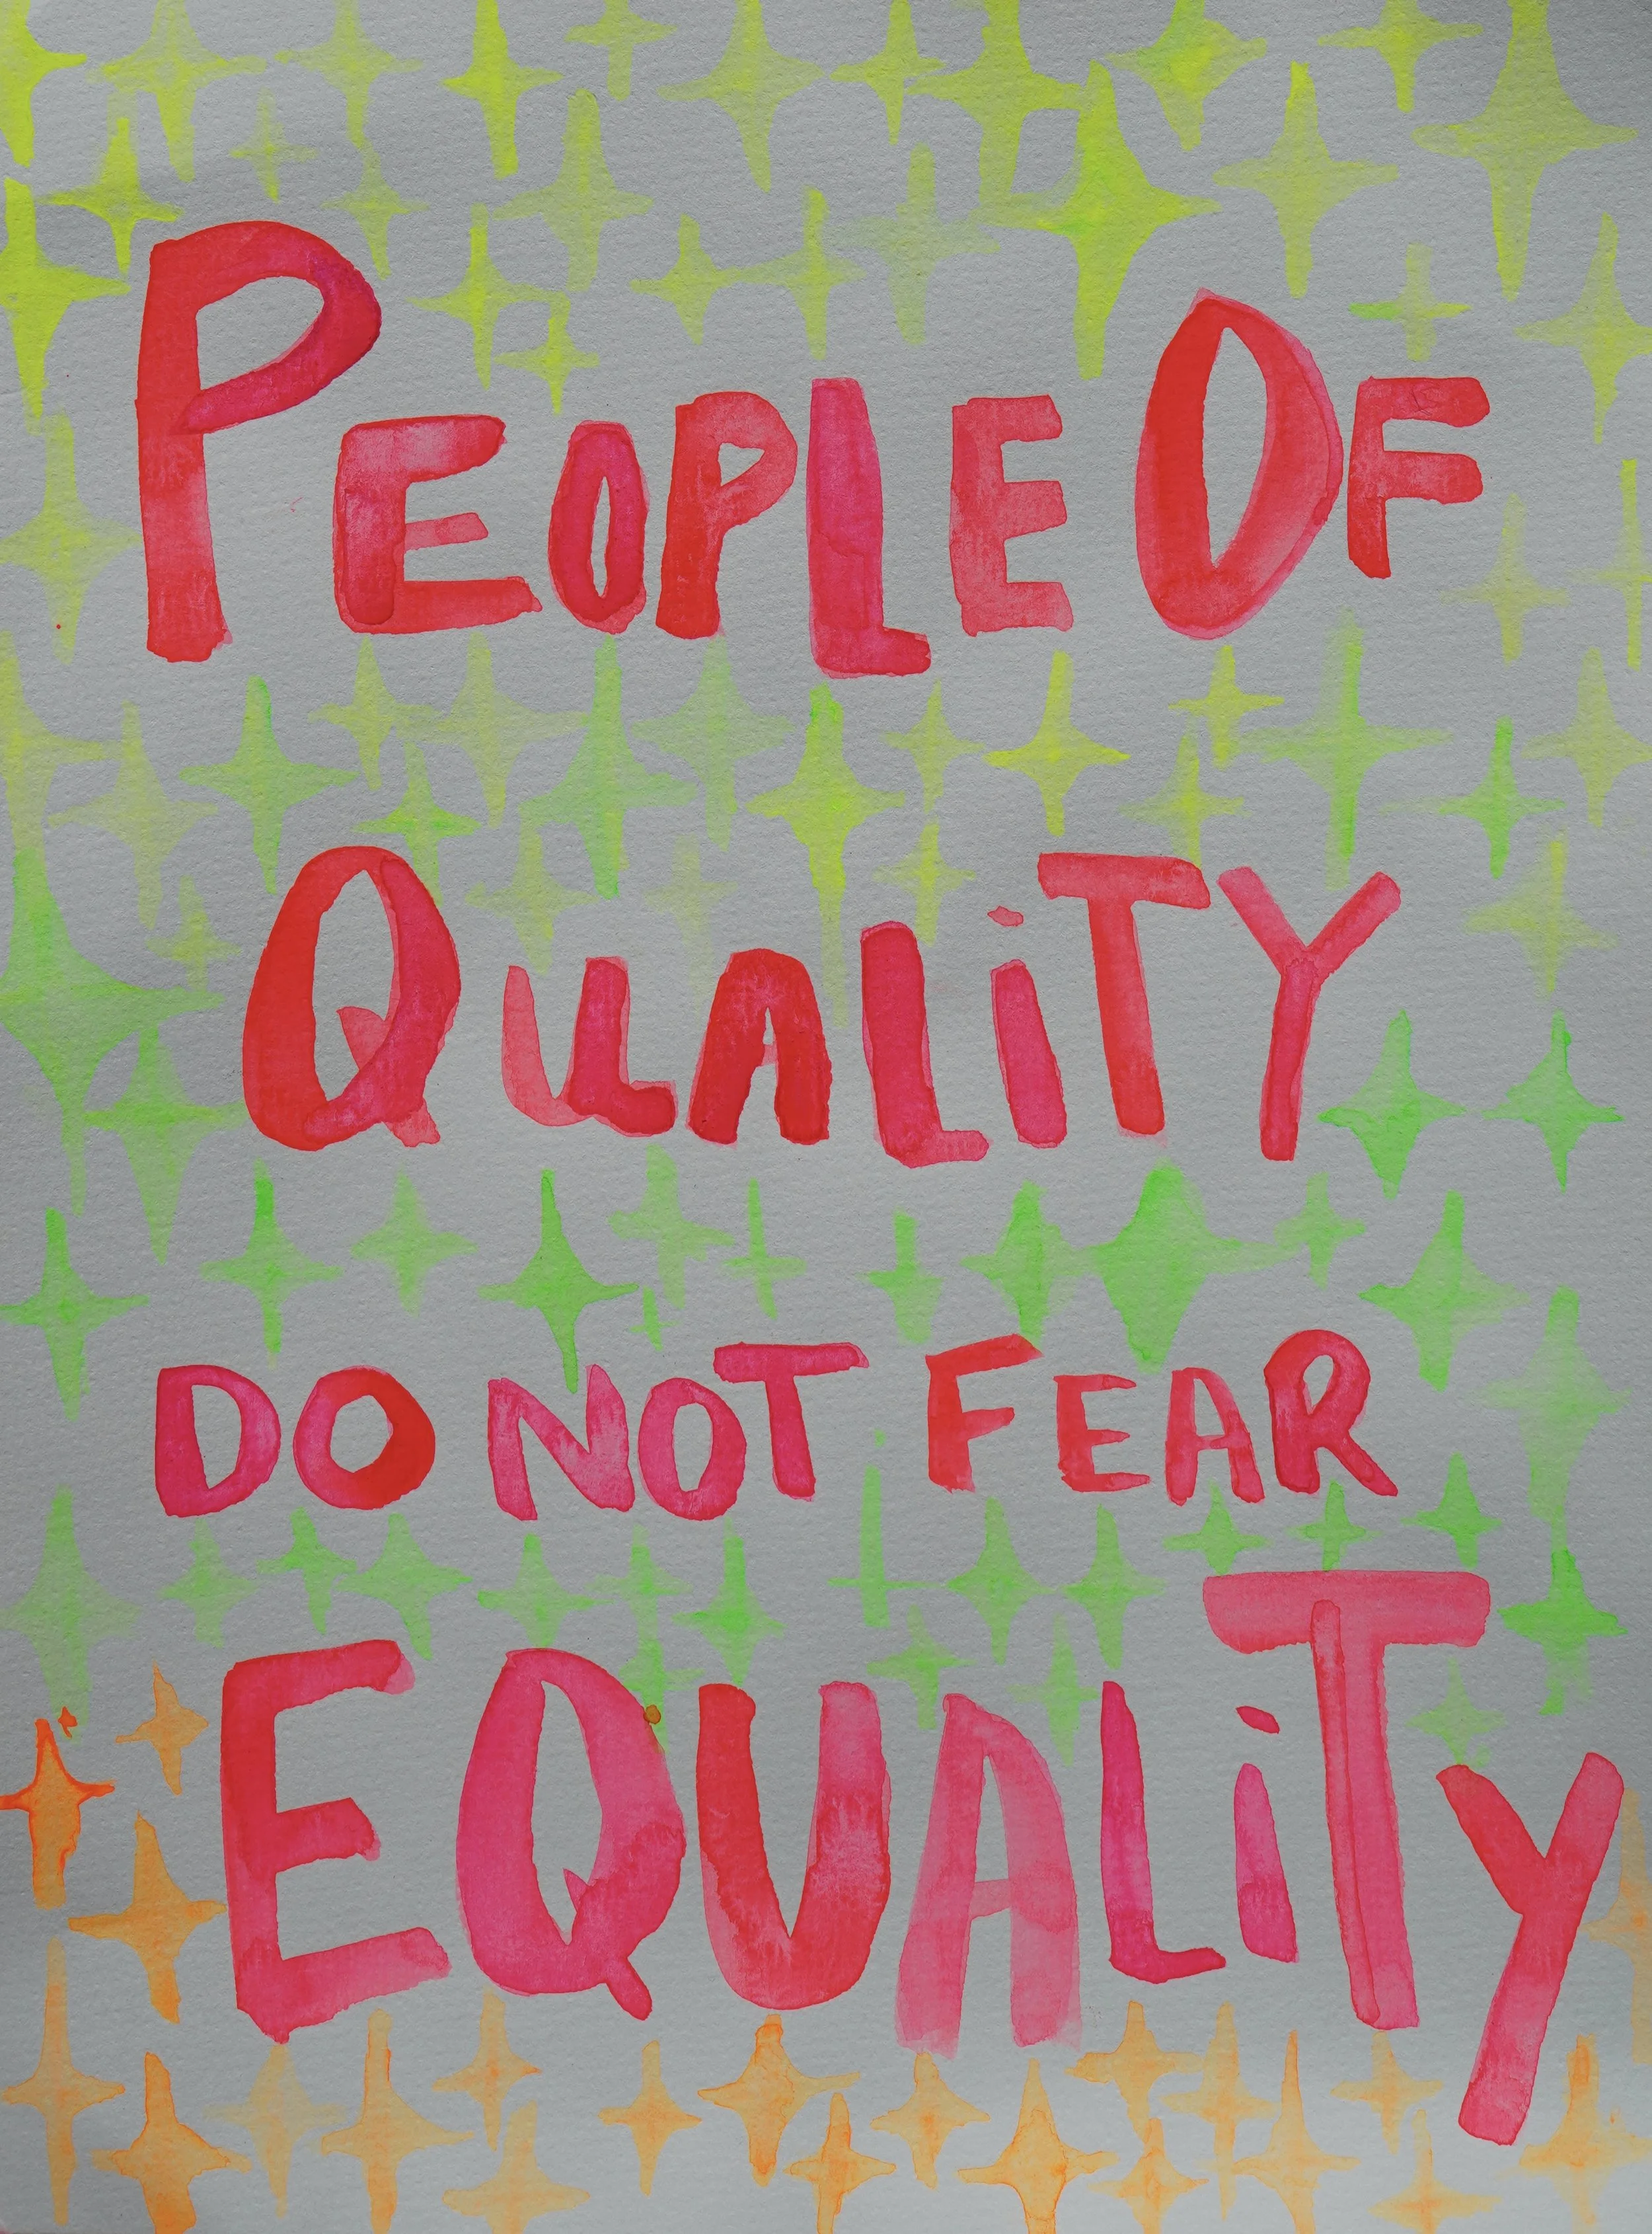 PEOPLE OF
QUALiTY
DO NOT FEAR
EQUALiTY